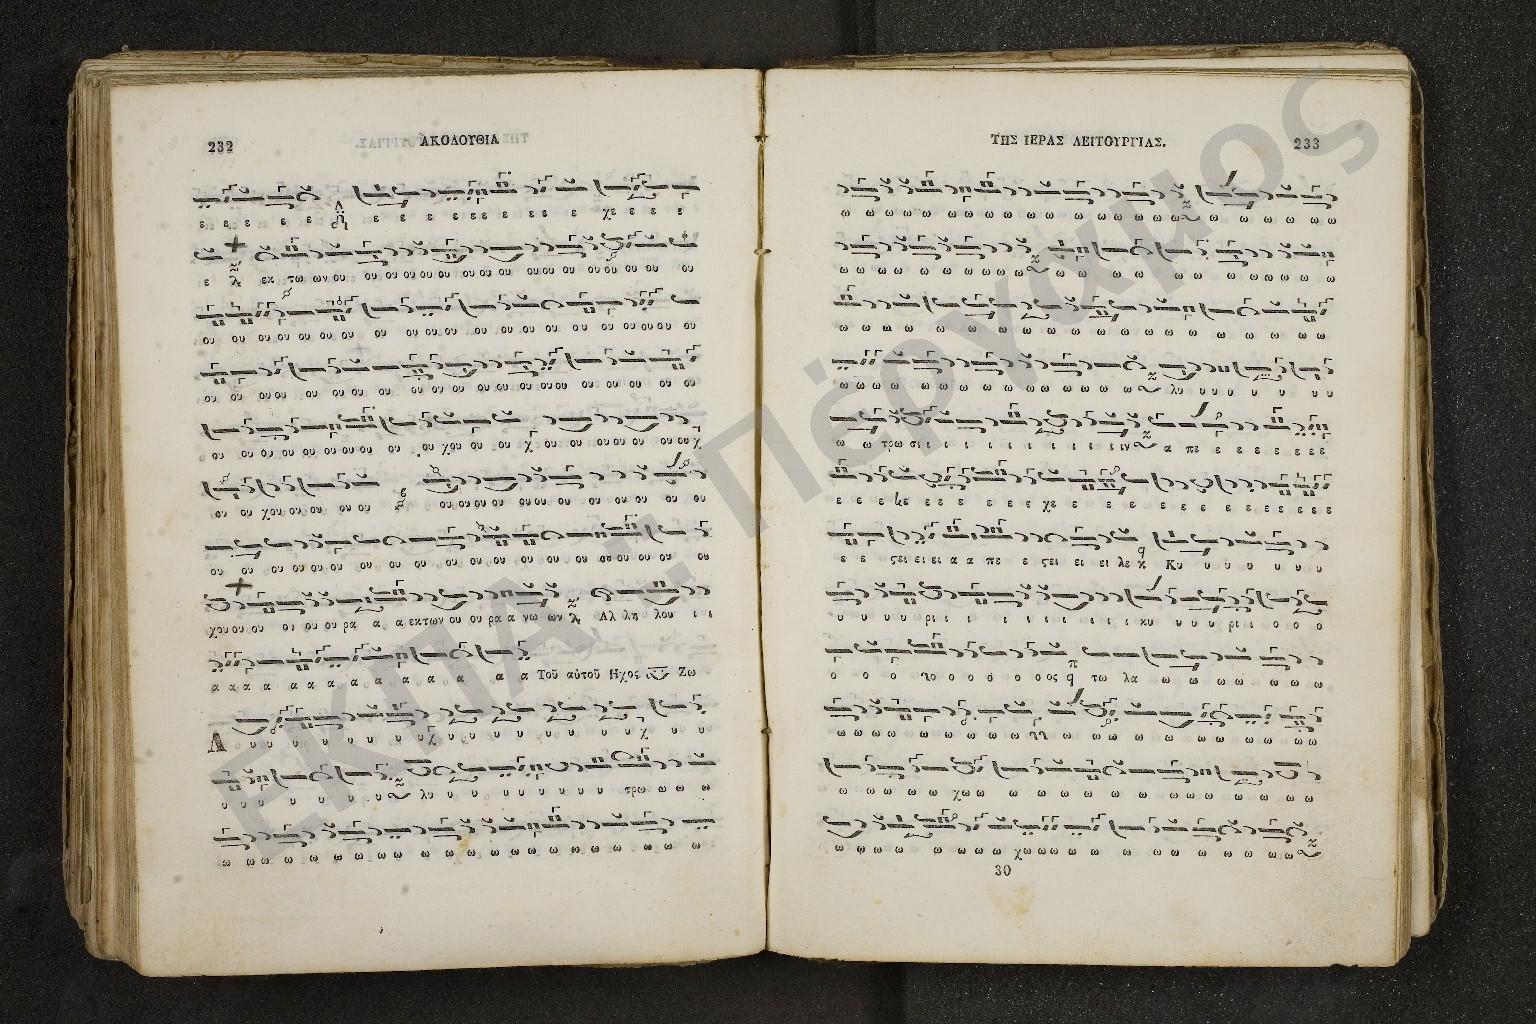 232
ΑΚΟΛΟΥΘΙΑ
ε ε ε ε ε ε ε ε ε ε ε ε ε ε ε ε χε ε ε ε
ε εκ τω ων ου ου ου ου ου ου ου ου ου ου ου ου ου ου ου ου
ου ου ου ου ου ου ου ου ου ου ου ου ου ου ου ου ου ου ου ου
ου ου ου ου ου ου ου ου ου ου ου ου ου ου ου ου ου
ου ου ου ου ου ου ου ου ου ου χου ου ου ου ου ου ου ου ου ου
ου ου χου ου ου ου ου ου ου ου ου ου ου ου ου ου ου ου
ου ου ου ου ου ου ου ου ου ου ου ου ου ου ου ου ου ου
χου ου ου ου ου ου ρα α α εκτων ου ου ρα α νω ων Αλ λη λου ι ι
α α α α α α α α α α α α α Τοῦ αὐτοῦ Ηχος Ζω
Λ υ υ υ υ υ υ υ υ υ υ υ υ υ υ υ
υ υ υ υ υ υ υ λυ υ υ υ υ υ υ υ υ τρω ω ω ω
ω ω ω ω ω ω ω ω ω ω ω ω ω ω ω ω ω ω ω ω ω ω
ΤΗΣ ΙΕΡΑΣ ΛΕΙΤΟΥΡΓΙΑΣ.
233
ω ω ω ω ω ω ω ω ω ω ω ω ω ω ω ω ω ω ω ω ω ω ω ω
ω ω ω ω ω ω ω ω ω ω ω ω ω ω ω ω ω ω ω ω
ω ω ω ω ω ω ω ω ω ω ω ω ω ω ω ω ω ω
ω ω ω ω ω ω ω ω ω ω ω ω ω ω ω λυ υ υ υ υ υ υ υ
ω ω τρω σι ι ι ι ι ι ι ι ι ι ι ιν α πε ε ε ε ε ε ε ε
ε ε ε ε ε ε ε ε ε ε χε ε ε ε ε ε ε ε ε ε ε ε ε ε
ε ε ςει ει ει α α πε ε ςει ει ει λε Κυ υ υ υ υ υ υ
υ υ υ υ ρι ι ι ι ι ι ι ι κυ υ υ υ ρι ι ο ο ο
ο ο ο ο ο ο ο ο ος τω λα ω ω ω ω ω ω ω
ω ω ω ω ω ω ω ω ω ω ω ω ω ω ω ω ω ω ω ω ω ω
ω ω ω ω ω χω ω ω ω ω ω ω ω ω ω ω ω ω ω ω
ω ω ω ω ω ω ω ω χω ω ω ω ω ω ω ω ω ω ω ω ω ω
30
ΕΚΠΑ - Πέργαμος